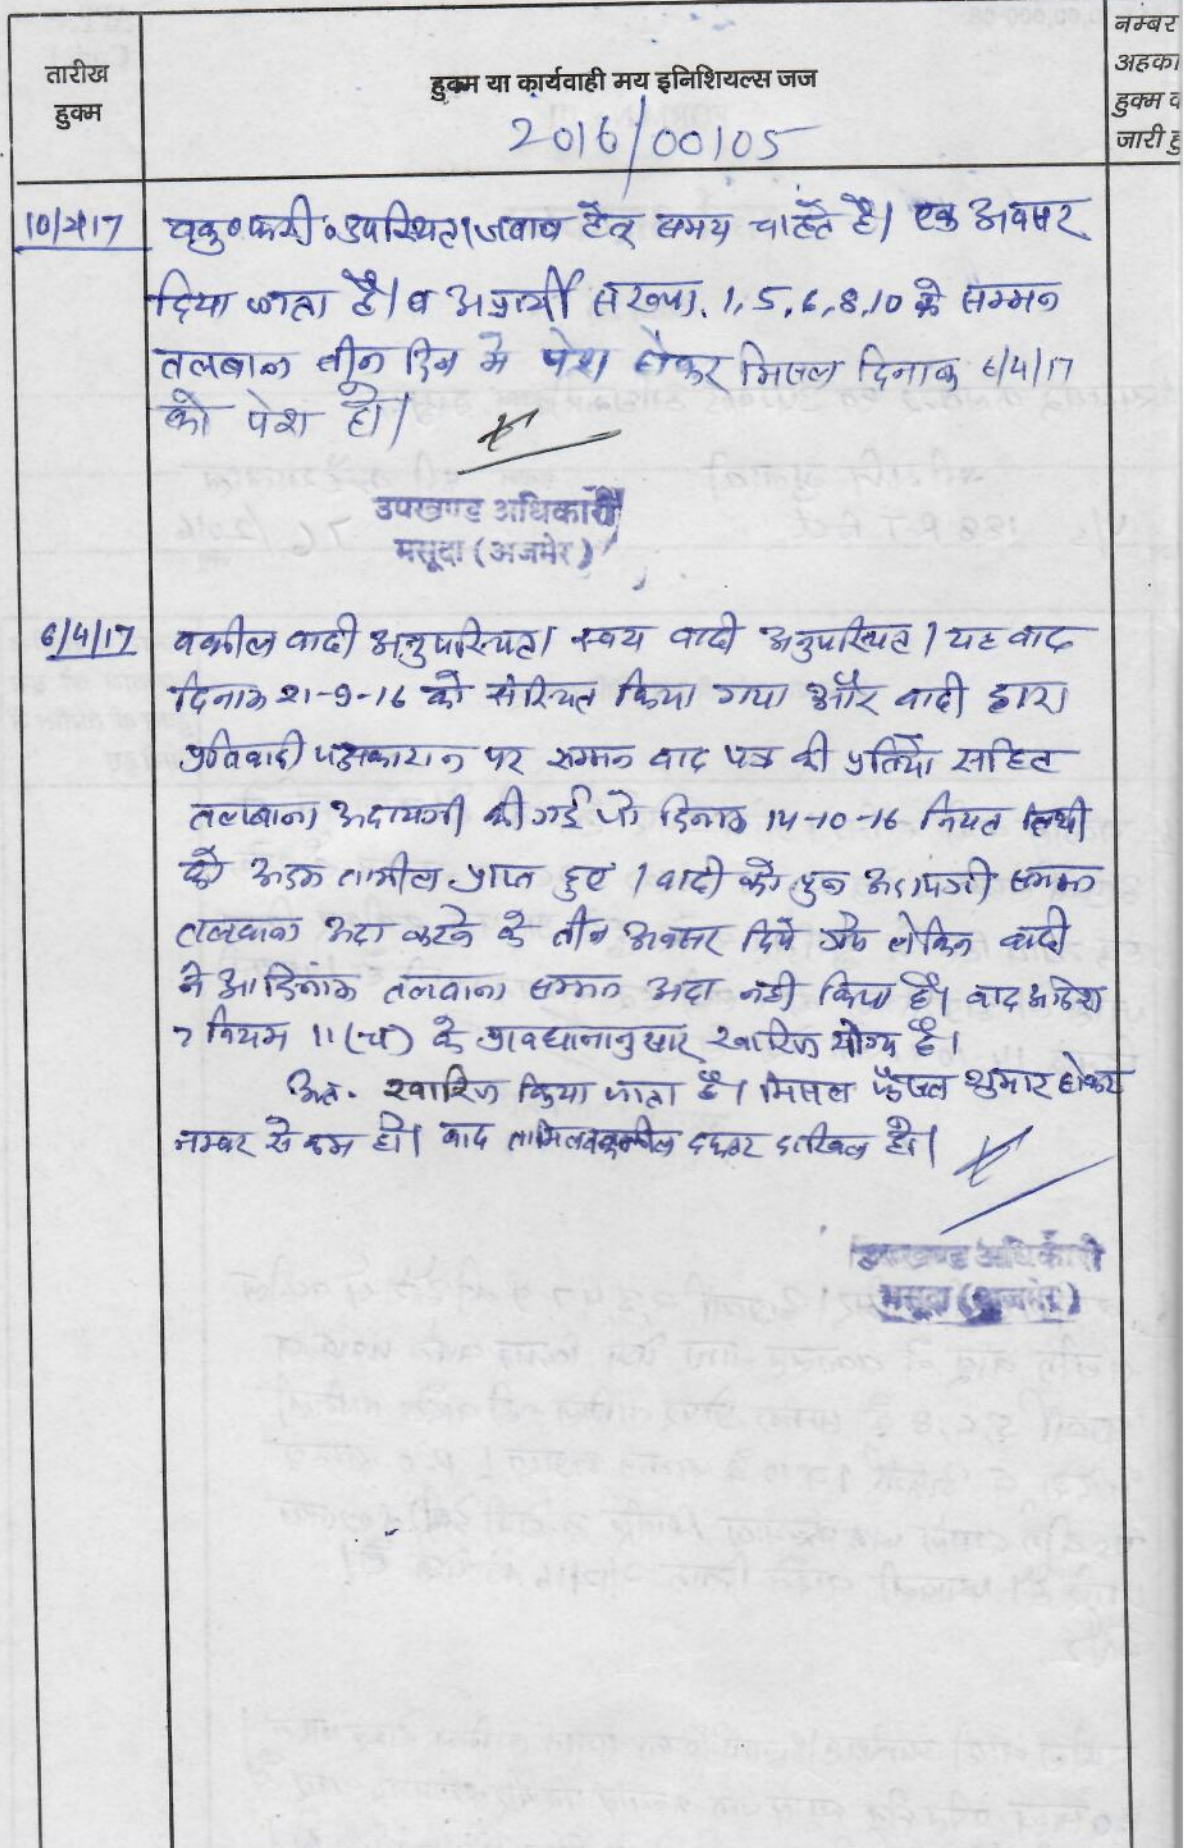 तारीख
हुक्म
हुक्म या कार्यवाही मय इनिशियल्स जज
नम्बर
अहका
हुक्म व
जारी हु
2016/00105
10/2/17 उपस्थित। जवाब हेतु समय चाहते है। एक अवसर
दिया जाता है। व अप्रार्थी संख्या. 1, 5, 6, 8, 10 के सम्मन
तलबाना तीन दिन मे पेश होकर मिसल दिनांक 6/4/17
को पेश हो।
उपखण्ड अधिकारी
मसूदा (अजमेर)
6/4/17 वकील वादी अनुपस्थित। स्वय वादी अनुपस्थित। यह वाद
दिनांक 21-9-16 को संस्थित किया गया और वादी द्वारा
प्रतिवादी पक्षकारान पर सम्मन वाद पत्र की प्रतियां सहित
तलबाना अदायगी की गई जो दिनांक 14-10-16 नियत तिथी
को अदम तामील प्राप्त हुए। वादी को पुन अदायगी सम्मन
तलबाना अदा करने के तीन अवसर दिये गये लेकिन वादी
ने आदिनांक तलवाना सम्मन अदा नही किया है। वाद आदेश
7 नियम 11(च) के प्रावधानानुसार खारिज योग्य है।
अत. खारिज किया जाता है। मिसल फैसल शुमार होकर
नम्बर से कम हो। बाद दफ्तर दाखिल हो।
उपखण्ड अधिकारी
मसूदा (अजमेर)